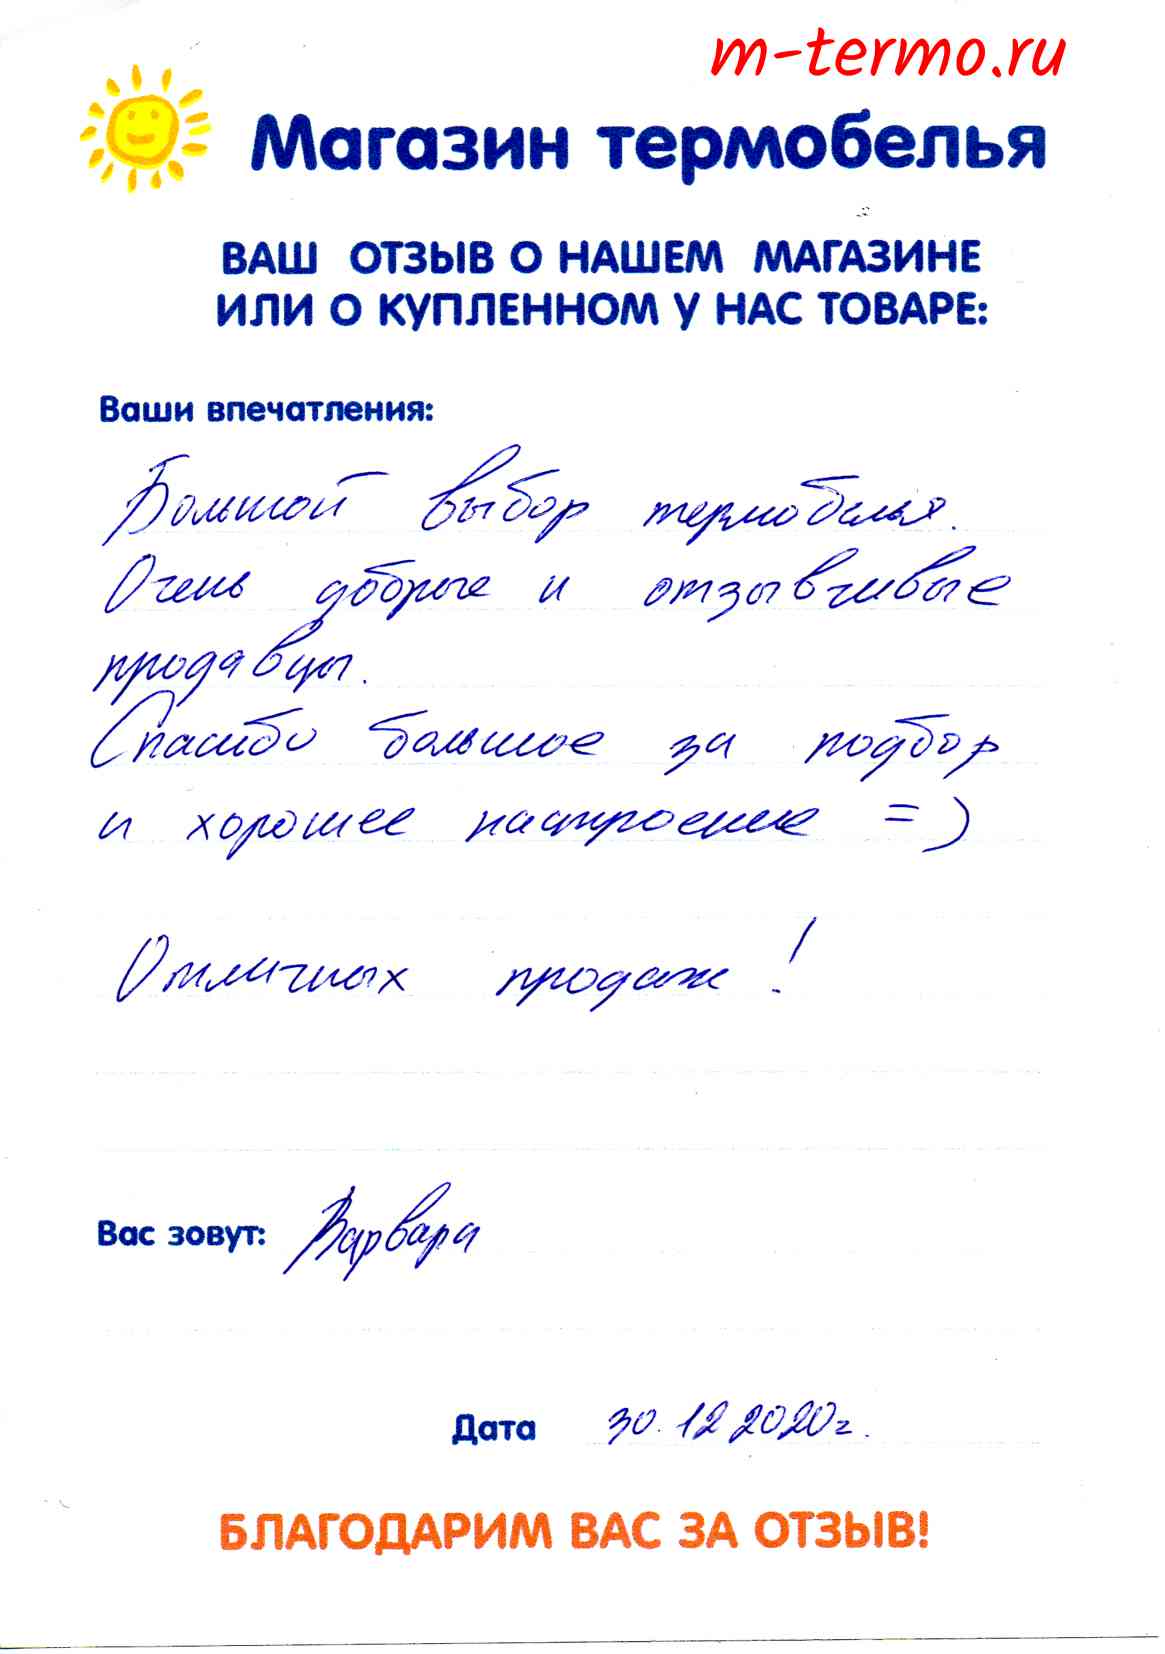 m-termo.ru
Магазин термобелья
ВАШ ОТЗЫВ О НАШЕМ МАГАЗИНЕ
ИЛИ О КУПЛЕННОМ У НАС ТОВАРЕ:
Ваши впечатления:
Большой выбор термобелья.
Очень добрые и отзывчивые
продавцы.
Спасибо большое за подбор
и хорошее настроение =)
Отличных продаж!
Вас зовут: Варвара
Дата 30.12 2020г.
БЛАГОДАРИМ ВАС ЗА ОТЗЫВ!